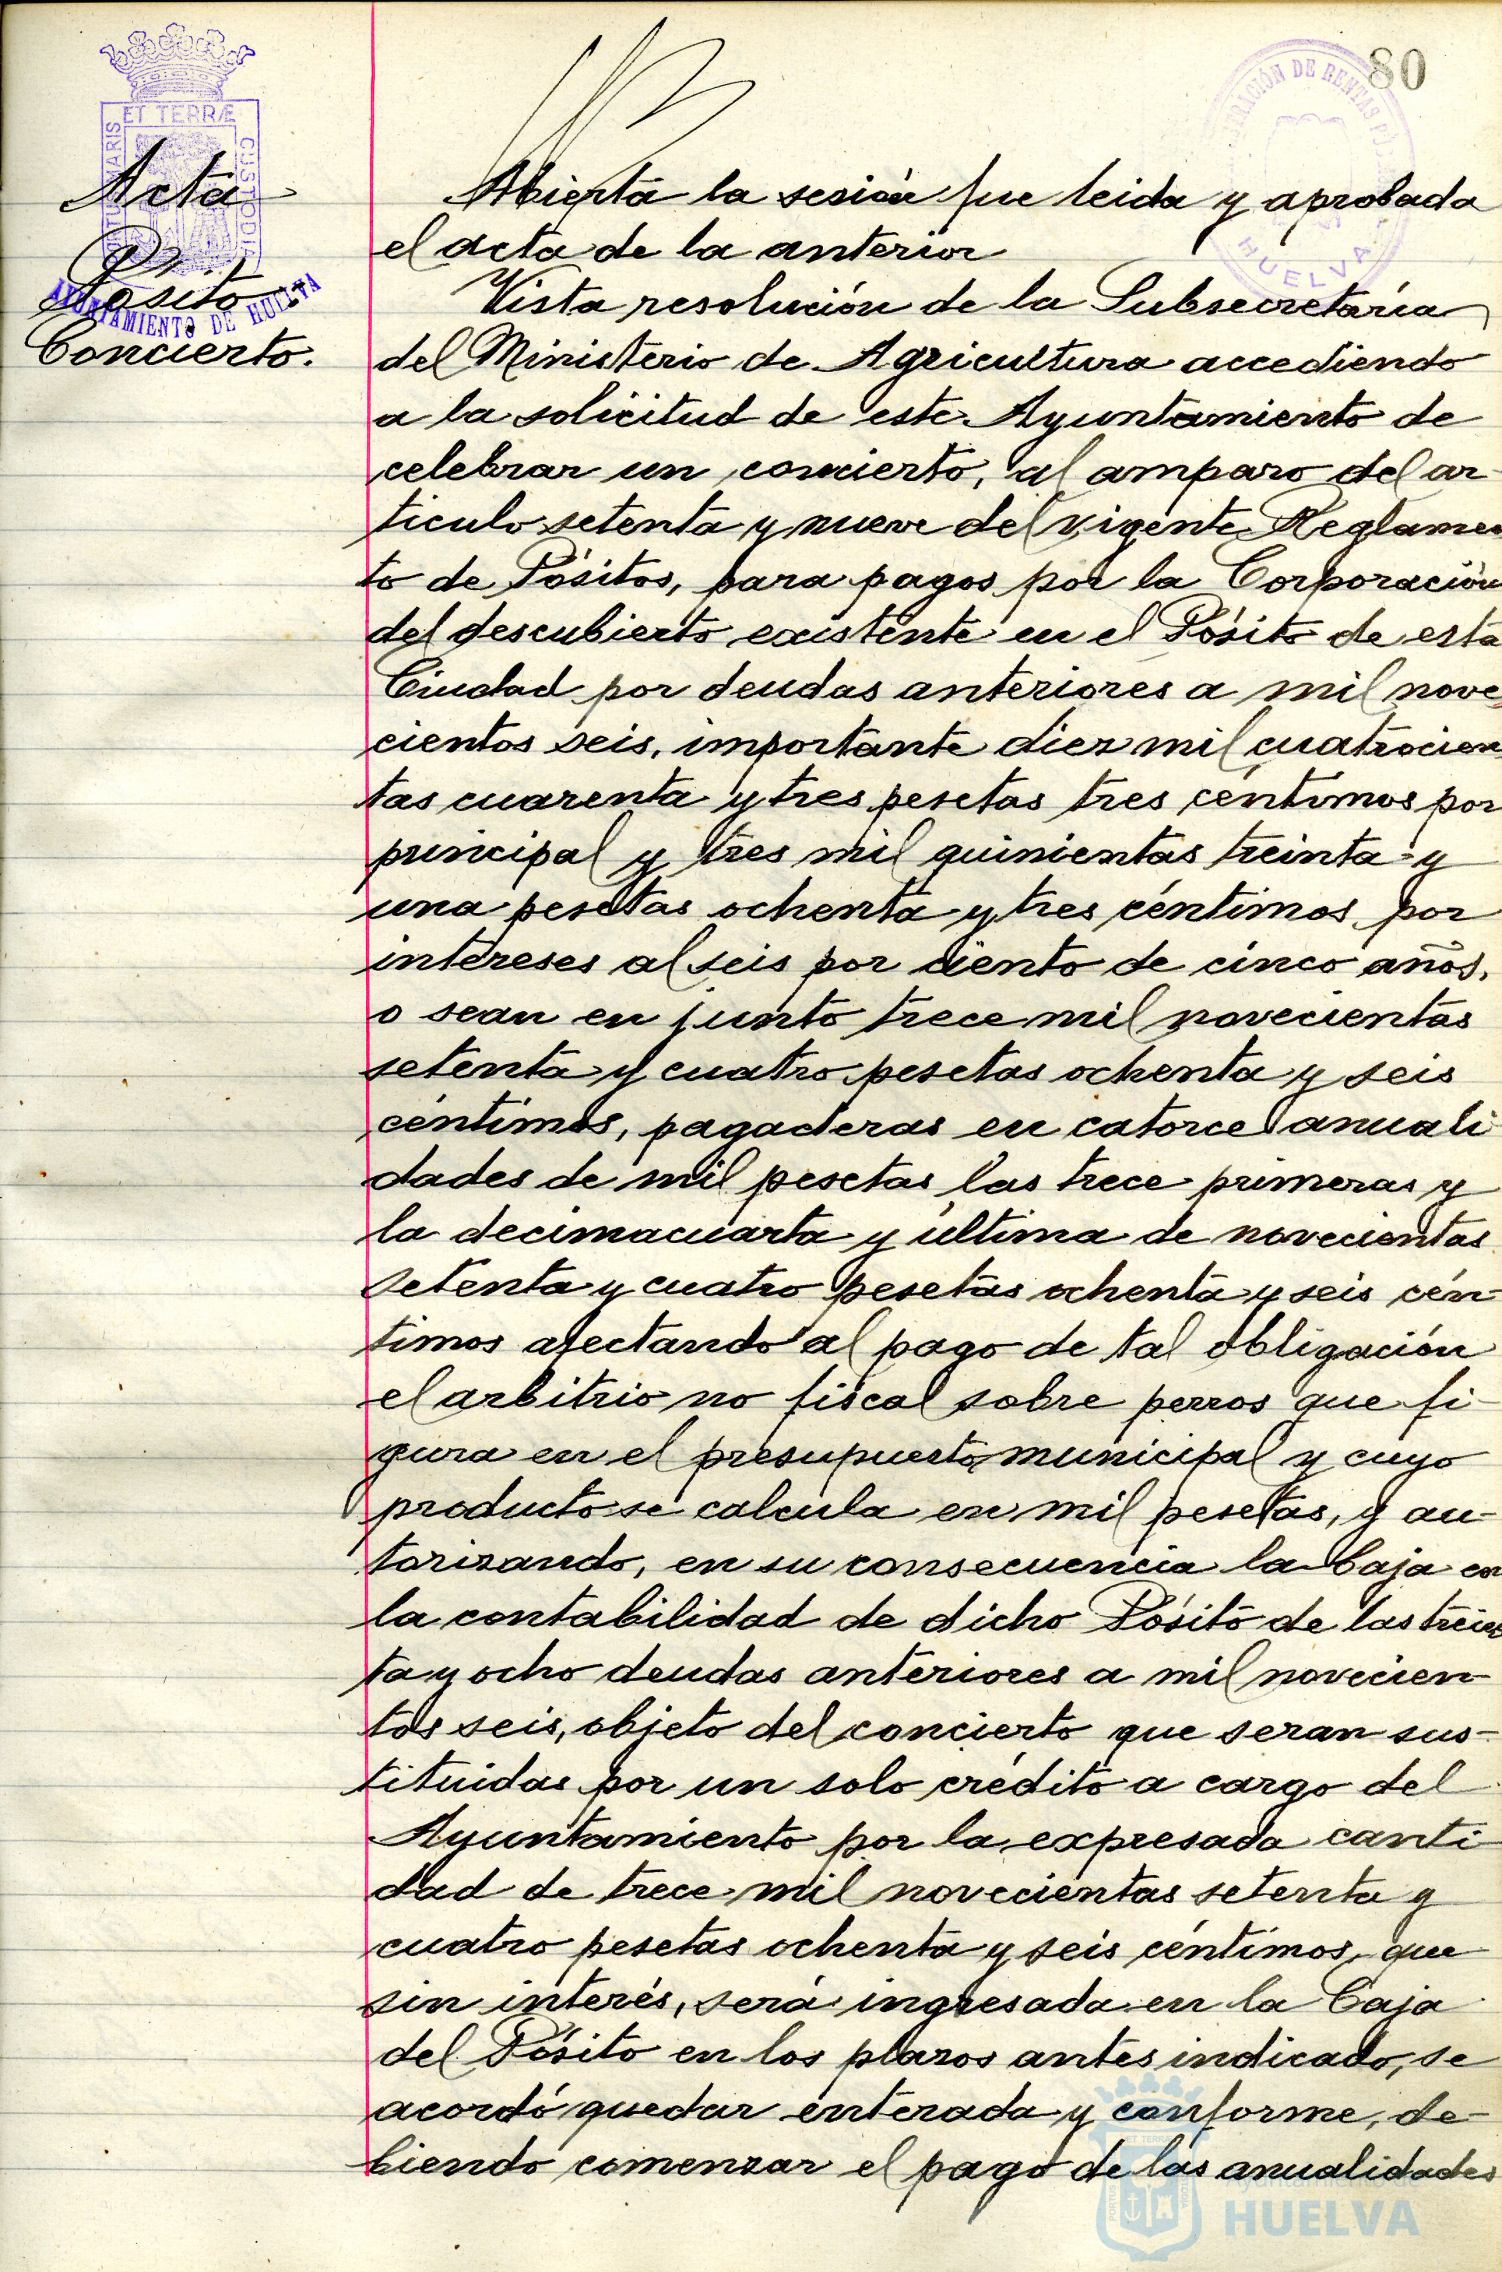 80
ET TERRÆ
MARIS
CUSTODI
AYUNTAMIENTO DE HUELVA
RACIÓN DE RENTAS
HUELVA
Acta
Pósito
Concierto.
Abierta la sesión fue leida y aprobada
el acta de la anterior
Vista resolución de la Subsecretaría
del Ministerio de Agricultura accediendo
a la solicitud de este Ayuntamiento de
celebrar un concierto, al amparo del ar-
ticulo setenta y nueve del vigente Reglamen
to de Pósitos, para pagos por la Corporación
del descubierto existente en el Pósito de esta
Ciudad por deudas anteriores a mil nove
cientos seis, importante diez mil cuatrocien
tas cuarenta y tres pesetas tres céntimos por
principal y tres mil quinientas treinta y
una pesetas ochenta y tres céntimos por
intereses al seis por ciento de cinco años,
o sean en junto trece mil novecientas
setenta y cuatro pesetas ochenta y seis
céntimos, pagaderas en catorce anuali
dades de mil pesetas las trece primeras y
la decimacuarta y última de novecientas
setenta y cuatro pesetas ochenta y seis cén-
timos afectando al pago de tal obligación
el arbitrio no fiscal sobre perros que fi-
gura en el presupuesto municipal y cuyo
producto se calcula en mil pesetas, y au-
torizando, en su consecuencia la baja en
la contabilidad de dicho Pósito de las trein
ta y ocho deudas anteriores a mil novecien-
tos seis, objeto del concierto que seran sus-
tituidas por un solo crédito a cargo del
Ayuntamiento por la expresada canti-
dad de trece mil novecientas setenta y
cuatro pesetas ochenta y seis céntimos, que
sin interés, será ingresada en la Caja
del Pósito en los plazos antes indicado, se
acordó quedar enterada y conforme, de-
biendo comenzar el pago de las anualidades
Ayuntamiento de
HUELVA